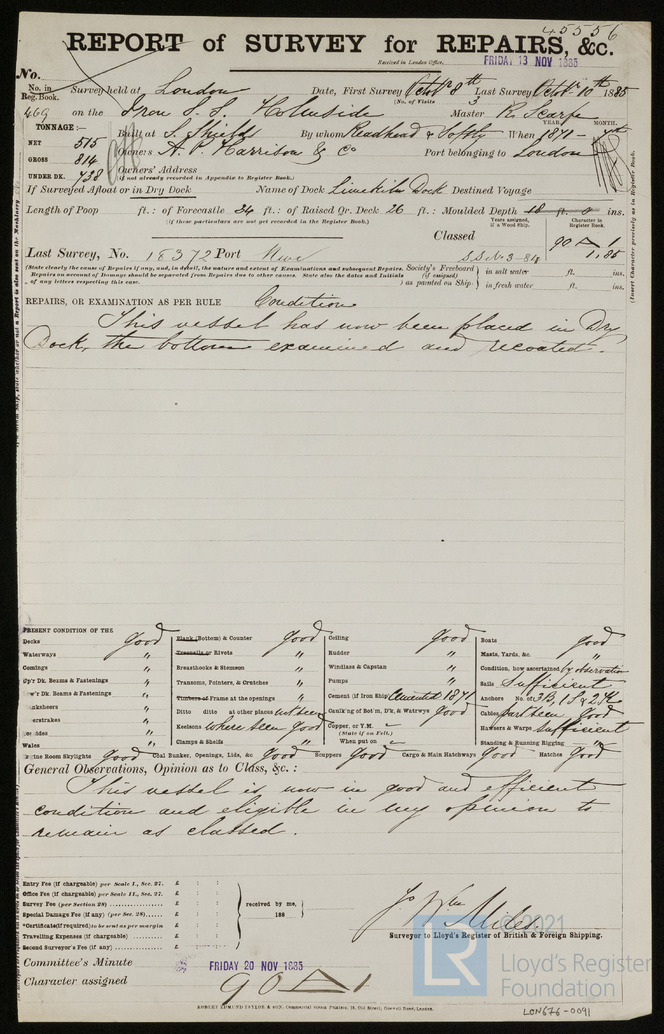 45556
REPORT of SURVEY for REPAIRS, &c.
Received in London Office, FRIDAY 13 NOV 1885
No.
No. in Reg. Book. Survey held at London Date, First Survey Octbr 8th Last Survey Octbr 10th 1885
(No. of Visits 3
469 on the Iron S.S. Holmside Master R. Scarpe
TONNAGE:— YEAR. MONTH.
NET 515 Built at S. Shields By whom Readhead & Softly When 1871 – 7th
GROSS 814 Owners A. P. Harrison & Co Port belonging to London
UNDER DK. 738 Owners' Address
(if not already recorded in Appendix to Register Book.)
If Surveyed Afloat or in Dry Dock Name of Dock Limekiln Dock Destined Voyage
Length of Poop ft.: of Forecastle 24 ft.: of Raised Qr. Deck 26 ft.: Moulded Depth 18 ft. 0 ins.
(if these particulars are not yet recorded in the Register Book.) Years assigned, if a Wood Ship. Character in Register Book.
Classed 90 A 1
Last Survey, No. 18372 Port Nwc S.S. No. 3-84 1.85
(State clearly the cause of Repairs if any, and, in detail, the nature and extent of Examinations and subsequent Repairs. Society's Freeboard (if assigned) as painted on Ship. in salt water ft. ins.
Repairs on account of Damage should be separated from Repairs due to other causes. State also the dates and Initials of any letters respecting this case. in fresh water ft. ins.
REPAIRS, OR EXAMINATION AS PER RULE Condition
This vessel has now been placed in Dry
Dock, the bottom examined and recoated.
PRESENT CONDITION OF THE
Decks good
Waterways "
Comings "
Up'r Dk. Beams & Fastenings "
Low'r Dk. Beams & Fastenings "
Wales "
Plank (Bottom) & Counter good
Treenails or Rivets "
Breasthooks & Stemson "
Transoms, Pointers, & Crutches "
Timbers of Frame at the openings "
Ditto ditto at other places not seen
Keelsons where seen good
Clamps & Shelfs "
Ceiling good
Rudder "
Windlass & Capstan "
Pumps "
Cement (if Iron Ship) Cemented 1871
Caulk'ng of Bot'm, D'k, & Watrwys good
Copper, or Y.M.
(State if on Felt.)
When put on
Boats good
Masts, Yards, &c. "
Condition, how ascertained by observation
Sails Sufficient
Anchors No. of 3B, 1S & 2K
Cables part seen good
Hawsers & Warps sufficient
Standing & Running Rigging "
Engine Room Skylights good Coal Bunker, Openings, Lids, &c. good Scuppers good Cargo & Main Hatchways good Hatches good
General Observations, Opinion as to Class, &c.:
This vessel is now in good and efficient
condition and eligible in my opinion to
remain as classed.
Entry Fee (if chargeable) per Scale I., Sec. 27. £ : :
Office Fee (if chargeable) per Scale II., Sec. 27. £ : :
Survey Fee (per Section 28) £ : :
Special Damage Fee (if any) (per Sec. 28) £ : :
*Certificate (if required) to be sent as per margin
Travelling Expenses (if chargeable) £ : :
Second Surveyor's Fee (if any) £ : :
received by me,
188
Miles
Surveyor to Lloyd's Register of British & Foreign Shipping.
Committee's Minute FRIDAY 20 NOV 1885
Character assigned 90 A 1
ROBERT EDMUND TAYLOR & SON, Commercial Steam Printers, 19, Old Street, Goswell Road, London.
© 2021
LR Lloyd's Register
Foundation
LCN676-0091